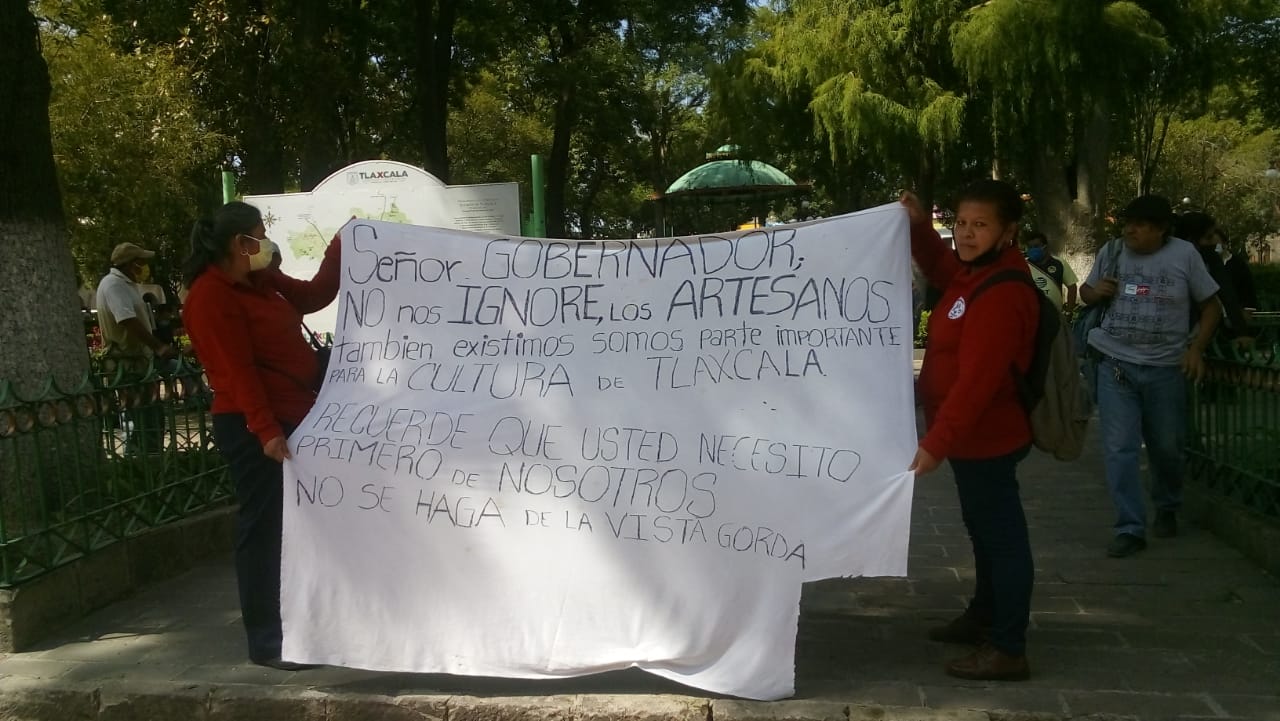 TLAXCALA
Señor GOBERNADOR,
NO nos IGNORE, LOS ARTESANOS
tambien existimos somos parte importante
PARA LA CULTURA DE TLAXCALA
RECUERDE QUE USTED NECESITO
PRIMERO DE NOSOTROS
NO SE HAGA DE LA VISTA GORDA